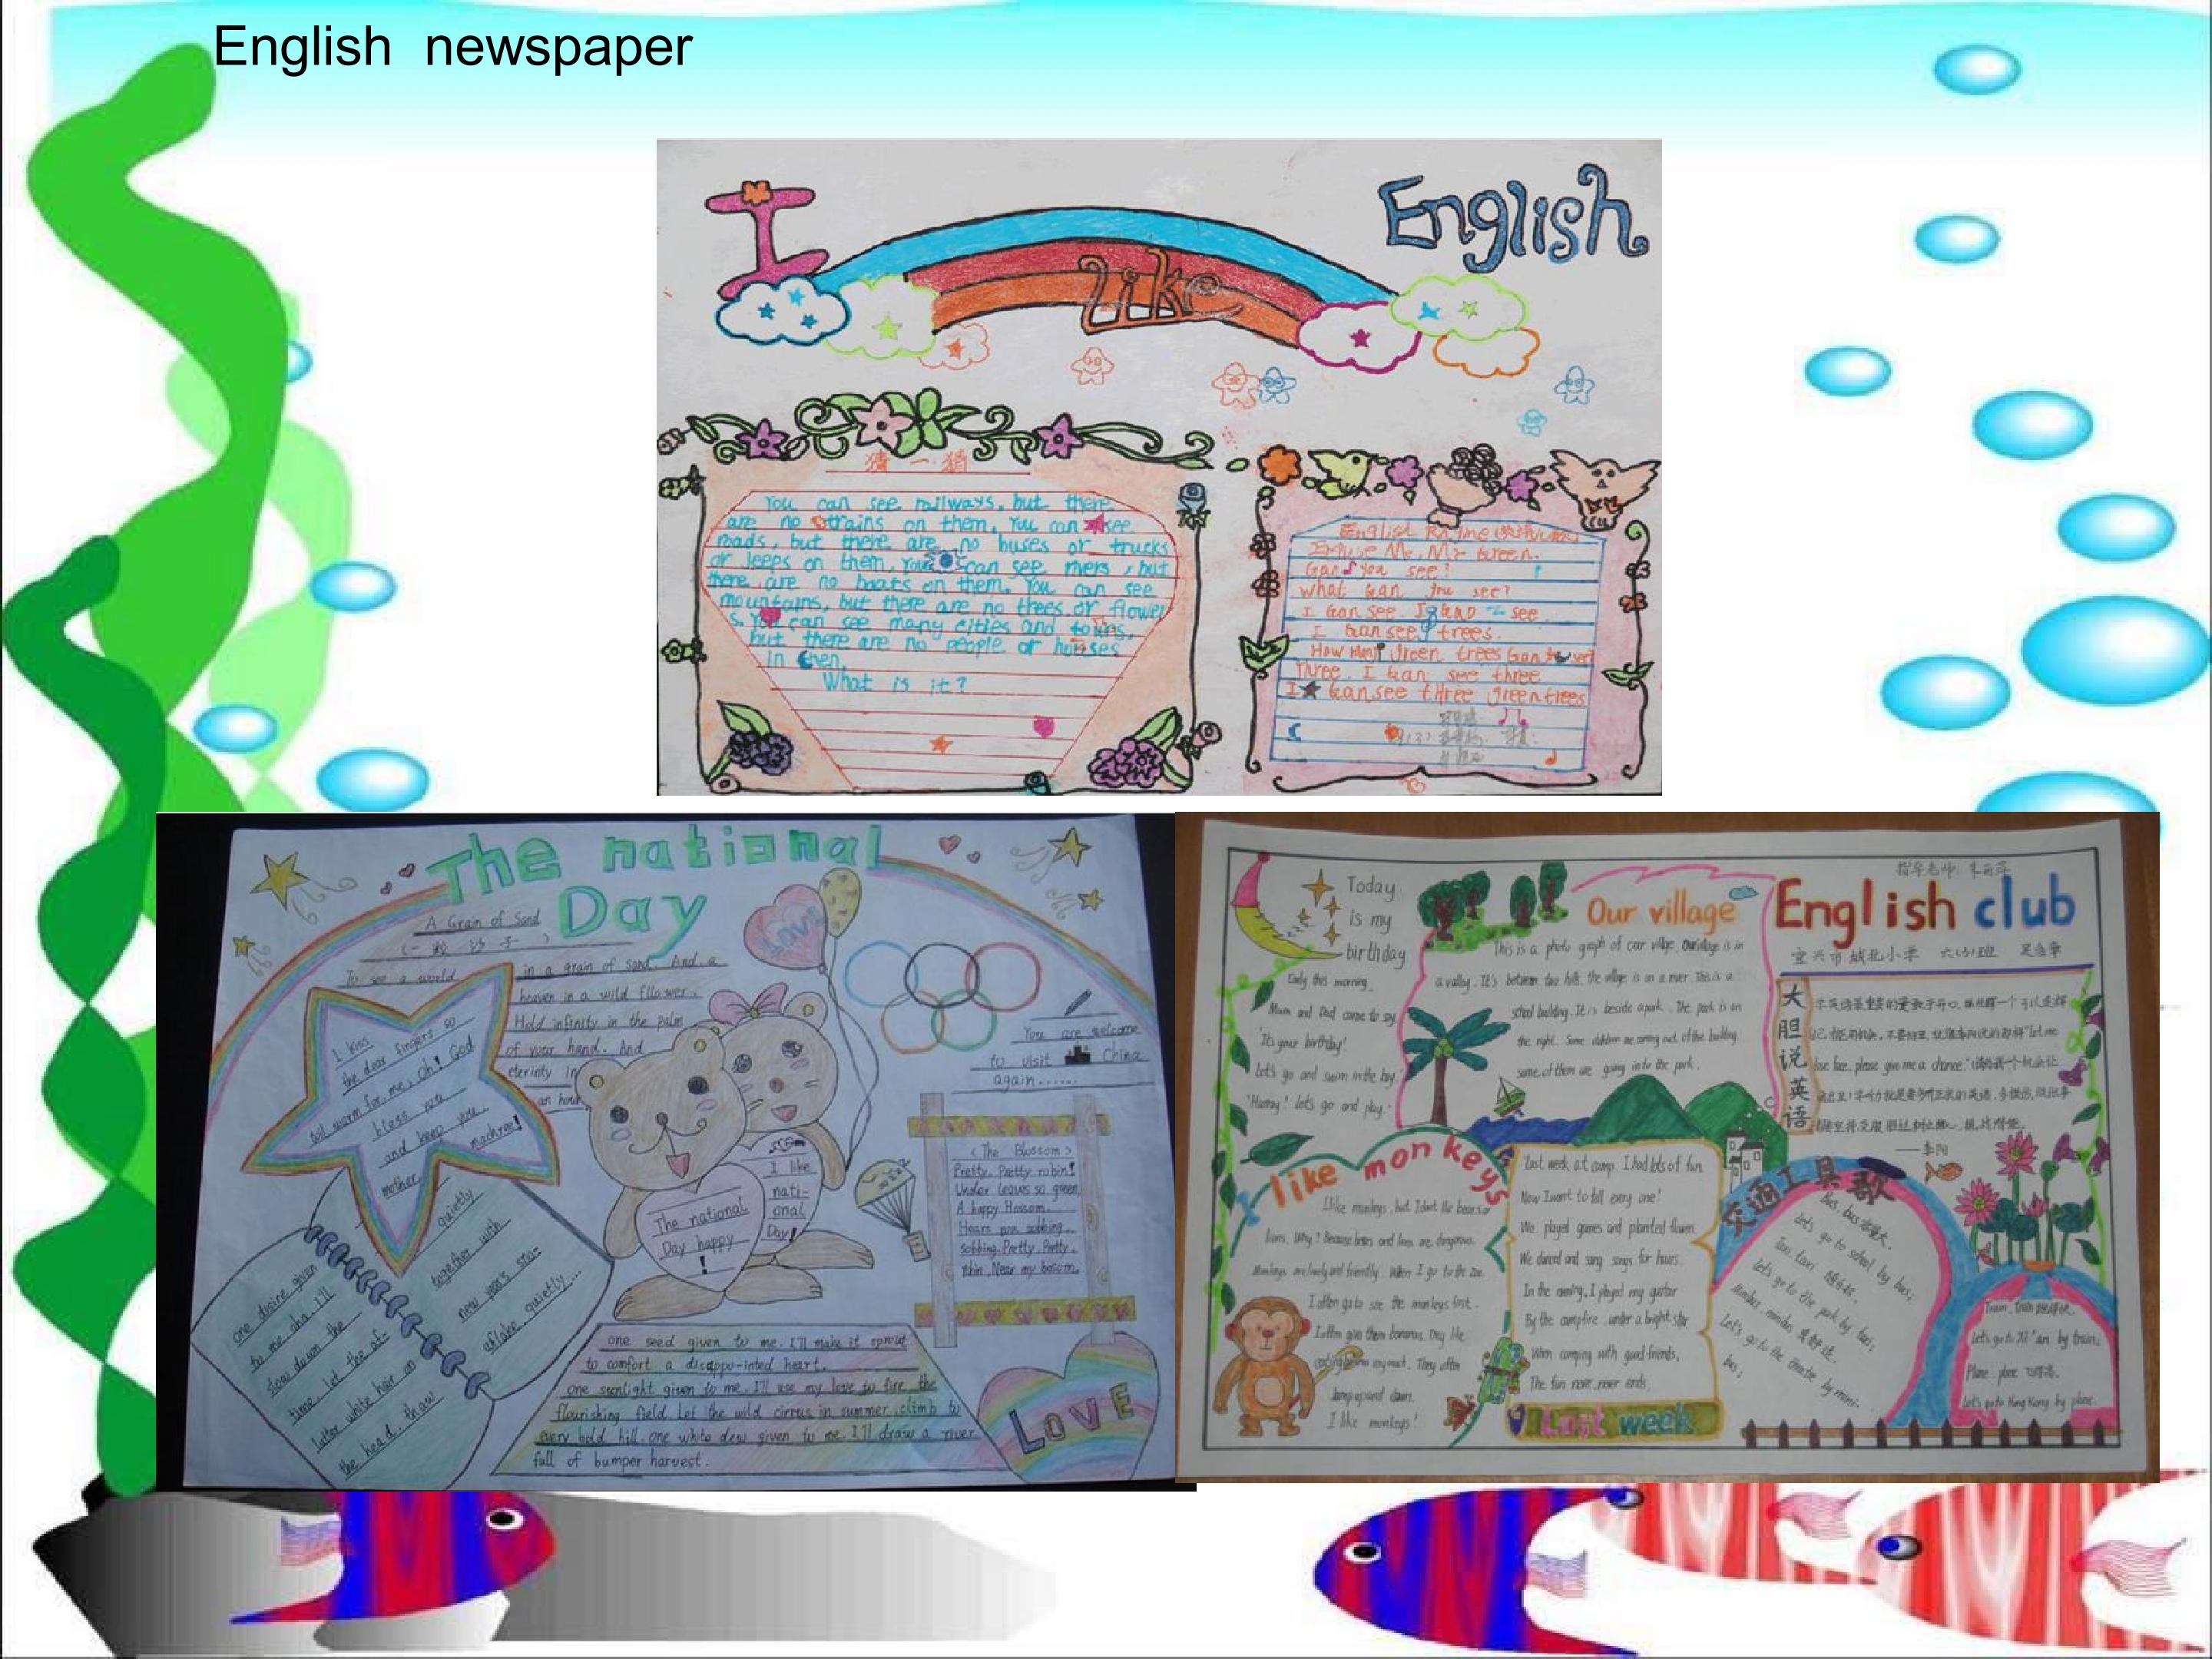 English newspaper
I like English
猜一猜
You can see railways, but there
are no trains on them. You can see
roads, but there are no buses or trucks
or jeeps on them. You can see rivers, but
there are no boats on them. You can see
mountains, but there are no trees or flower
s. You can see many cities and towns,
but there are no people or houses
in
What is it?
English Rhyme
Me, Mr Green.
you see?
What can you see?
I can see see
I can see trees.
How many green trees can
Three. I can see three
I can see three green trees
The national
Day
A Grain of Sand
(一粒沙子)
To see a world
in a grain of sand. And a
heaven in a wild
Hold infinity in the palm
of your hand. And
in
an hour!
I kiss
the dear fingers so
toil warm for me, Oh! God
bless you
and keep you
mother machree!
Love
You are welcome
to visit China
again......
The national
Day happy
!
I like
nati-
onal
Day!
<The Blossom>
Pretty, Pretty robin!
Under leaves so green
A happy
Hears you sobbing
sobbing. Pretty, Pretty
robin, Near my bosom.
one desire given
to me aha. I'll
slow down the
time let the
later white hair on
the head. thaw
quietly
together with
new year's
quietly...
one seed given to me. I'll make it sprout
to comfort a disappo-inted heart.
one given to me. I'll use my love to fire the
flourishing field. Let the wild cirrus in summer climb to
every bold hill. one white dew given to me. I'll draw a river
full of bumper harvest.
LOVE
Today
is my
birthday
Early this morning
Mum and Dad come to say
'It's your birthday!
Let's go and swim in the bay.'
'Hurray! Let's go and play.'
Our village
This is a photo graph of our village. Our village is in
a valley. It's between two hills. the village is on a river. This is a
school building. It is beside a park. The park is on
the right. Some children are coming out of the building.
some of them are going into the park.
指导老师
English club
宜兴市城北小学
大胆说英语
like monkeys
I like monkeys, but I don't like bears or
lions. Why? Because bears and lions are dangerous.
Monkeys are lovely and friendly. When I go to the zoo.
I often go to see the monkeys first.
I often give them bananas. They like
very much. They often
jump up and down.
I like monkeys!
Last week at camp. I had lots of fun.
Now I want to tell every one!
We played games and planted flowers
We danced and sang songs for hours.
In the evening, I played my guitar
By the campfire, under a bright star
When camping with good friends,
The fun never, never ends.
Last week
交通工具歌
Bus, bus
Let's go to school by bus;
Taxi, taxi
Let's go to the park by taxi;
Minibus, minibus
Let's go to the theatre by mini-
bus;
Train, train
Let's go to Xi'an by train;
Plane, plane
Let's go to Hong Kong by plane.